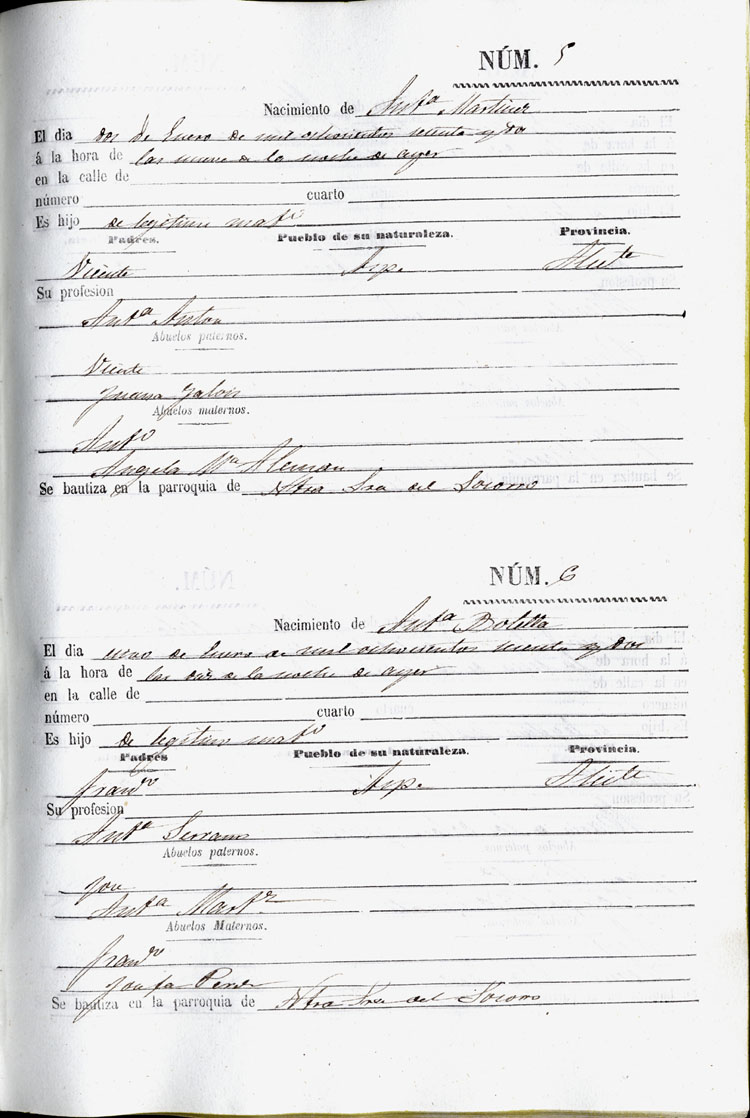 NÚM. 5
Nacimiento de Antª Martinez
El dia dos de Enero de mil ochocientos sesenta y dos
á la hora de las nueve de la noche de ayer
en la calle de
número cuarto
Es hijo de legitimo matº
Padres. Pueblo de su naturaleza. Provincia.
Vicente Aspe Alicte
Su profesion
Antª Anton
Abuelos paternos.
Vicente
Juana
Abuelos maternos.
Antº
Angela Mª Aleman
Se bautiza en la parroquia de Ntra Sra del Socorro
NÚM. 6
Nacimiento de Antª Botella
El dia uno de Enero de mil ochocientos sesenta y dos
á la hora de las diez de la noche de ayer
en la calle de
número cuarto
Es hijo de legitimo matº
Padres Pueblo de su naturaleza. Provincia.
Francº Aspe Alicte
Su profesion
Antª Serrano
Abuelos paternos.
Jose
Antª Martz
Abuelos Maternos.
Francº
Josefa Perez
Se bautiza en la parroquia de Ntra Sra del Socorro